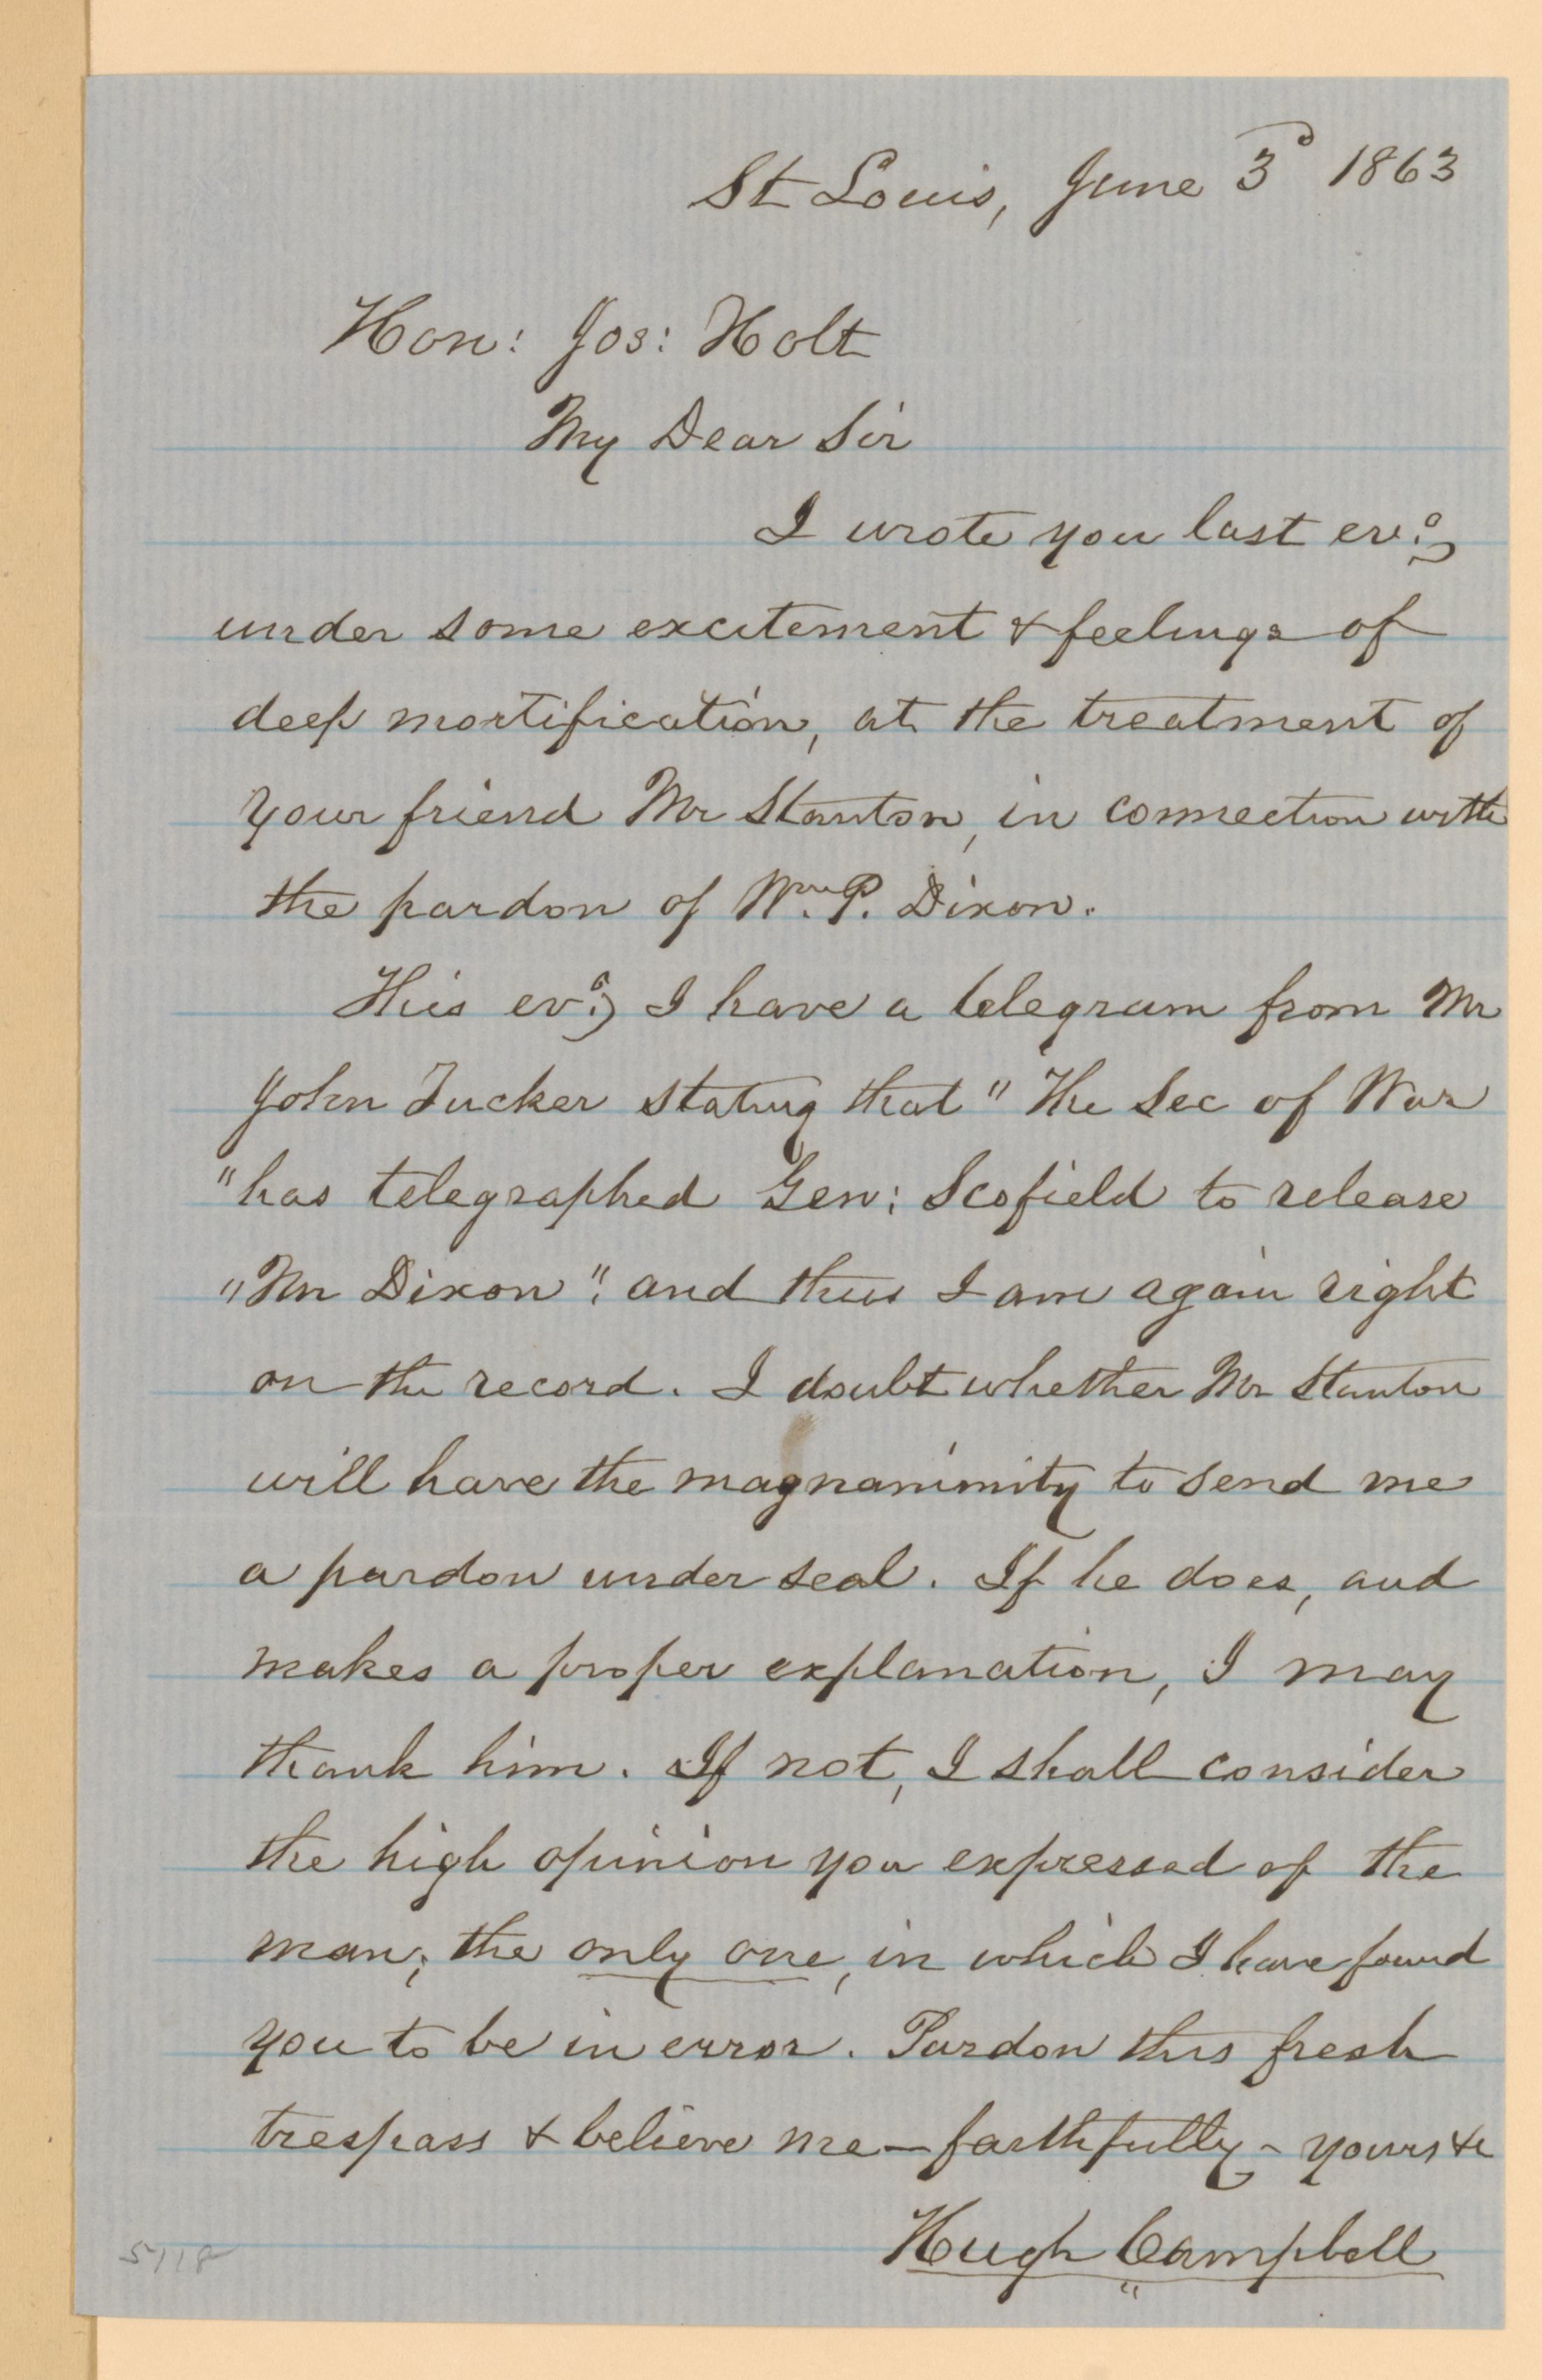 St Louis, June 3d 1863
Hon: Jos: Holt
My Dear Sir
I wrote you last ev:g
under some excitement & feelings of
deep mortification, at the treatment of
your friend Mr Stanton, in connection with
the pardon of Wm. P. Dixon.
This ev:g I have a telegram from Mr
John Tucker stating that "The Sec of War
"has telegraphed Gen: Scofield to release
"Mr Dixon". and thus I am again right
on the record. I doubt whether Mr Stanton
will have the magnanimity to send me
a pardon under seal. If he does, and
makes a proper explanation, I may
thank him. If not, I shall consider
the high opinion you expressed of the
man; the only one, in which I have found
you to be in error. Pardon this fresh
trespass & believe me — faithfully - yours &c
Hugh Campbell
5118